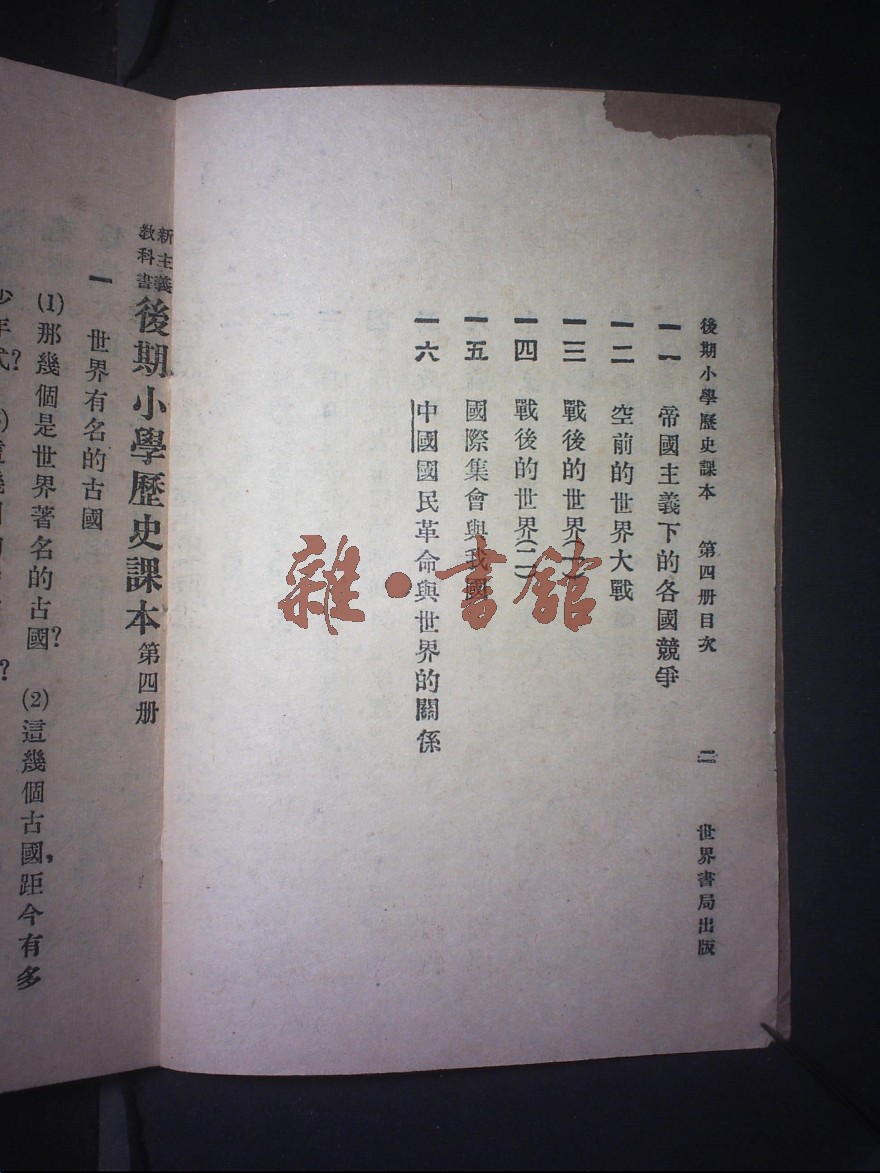 後期小學歷史課本 第四册目次 二 世界書局出版
一一 帝國主義下的各國競爭
一二 空前的世界大戰
一三 戰後的世界(一)
一四 戰後的世界(二)
一五 國際集會與我國
一六 中國國民革命與世界的關係
雜·書館
新主義
教科書
後期小學歷史課本 第四册
一 世界有名的古國
(1)那幾個是世界著名的古國? (2)這幾個古國,距今有多
少年代?